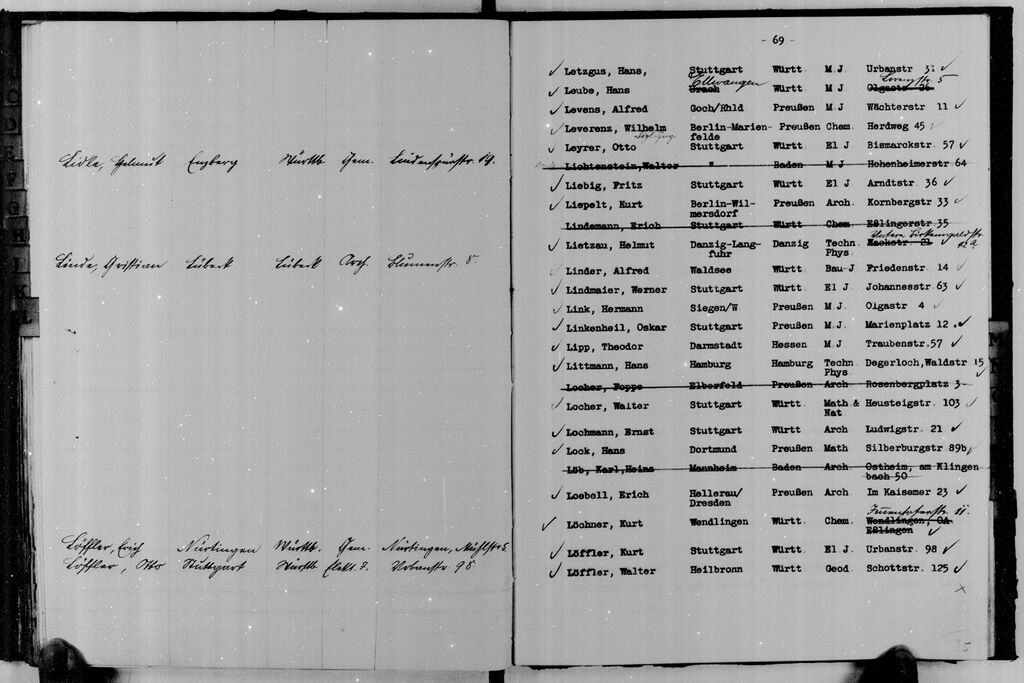 Lidle, Helmut Enzberg Württb. Gem. Lindenspürstr. 19.
Linde, Christian Lübeck Lübeck Arch. Blumenstr. 8
Löffler, Erich Nürtingen Württb. Gem. Nürtingen, Mühlstr 5
Löffler, Otto Stuttgart Württb. Elekt. J. Urbanstr. 98
- 69 -
✓ Letzgus, Hans, Stuttgart Württ. M J Urbanstr 31 ✓
Ellwangen Lorenzstr. 5
✓ Leube, Hans Urach Württ M J Olgastr 26
✓ Levens, Alfred Goch/Rhld Preußen M J Wächterstr 11 ✓
✓ Leverenz, Wilhelm Berlin-Marien- Preußen Chem. Herdweg 45 ✓
felde
✓ Leyrer, Otto Stuttgart Württ El J Bismarckstr. 57 ✓
Lichtenstein, Walter " Baden M J Hohenheimerstr 64
✓ Liebig, Fritz Stuttgart Württ. El J Arndtstr. 36 ✓
✓ Liepelt, Kurt Berlin-Wil- Preußen Arch. Kornbergstr 33 ✓
mersdorf
Lindemann, Erich Stuttgart Württ Chem Eßlingerstr 35
Untere Birkenwaldstr.
✓ Lietzau, Helmut Danzig-Lang- Danzig Techn. Hackstr 21 ✓
fuhr Phys.
✓ Linder, Alfred Waldsee Württ. Bau-J Friedenstr. 14 ✓
✓ Lindmaier, Werner Stuttgart Württ. El J Johannesstr 63 ✓
✓ Link, Hermann Siegen/W Preußen M J. Olgastr 4 ✓
✓ Linkenheil, Oskar Stuttgart Preußen M J. Marienplatz 12 ✓
✓ Lipp, Theodor Darmstadt Hessen M J Traubenstr. 57 ✓
✓ Littmann, Hans Hamburg Hamburg Techn Degerloch, Waldstr 15
Phys. ✓
Locher, Poppo Elberfeld Preußen Arch Rosenbergplatz 3
✓ Locher, Walter Stuttgart Württ. Math & Heusteigstr. 103 ✓
Nat
✓ Lochmann, Ernst Stuttgart Württ Arch Ludwigstr. 21 ✓
✓ Lock, Hans Dortmund Preußen Math Silberburgstr 89b ✓
Löb, Karl, Heinz Mannheim Baden Arch Ostheim, am Klingen
bach 50
✓ Loebell, Erich Hellerau/ Preußen Arch Im Kaisemer 23 ✓
Dresden
✓ Löchner, Kurt Wendlingen Württ. Chem. Wendlingen, OA
Eßlingen ✓
✓ Löffler, Kurt Stuttgart Württ El J. Urbanstr. 98 ✓
✓ Löffler, Walter Heilbronn Württ Geod. Schottstr. 125 ✓
x
25